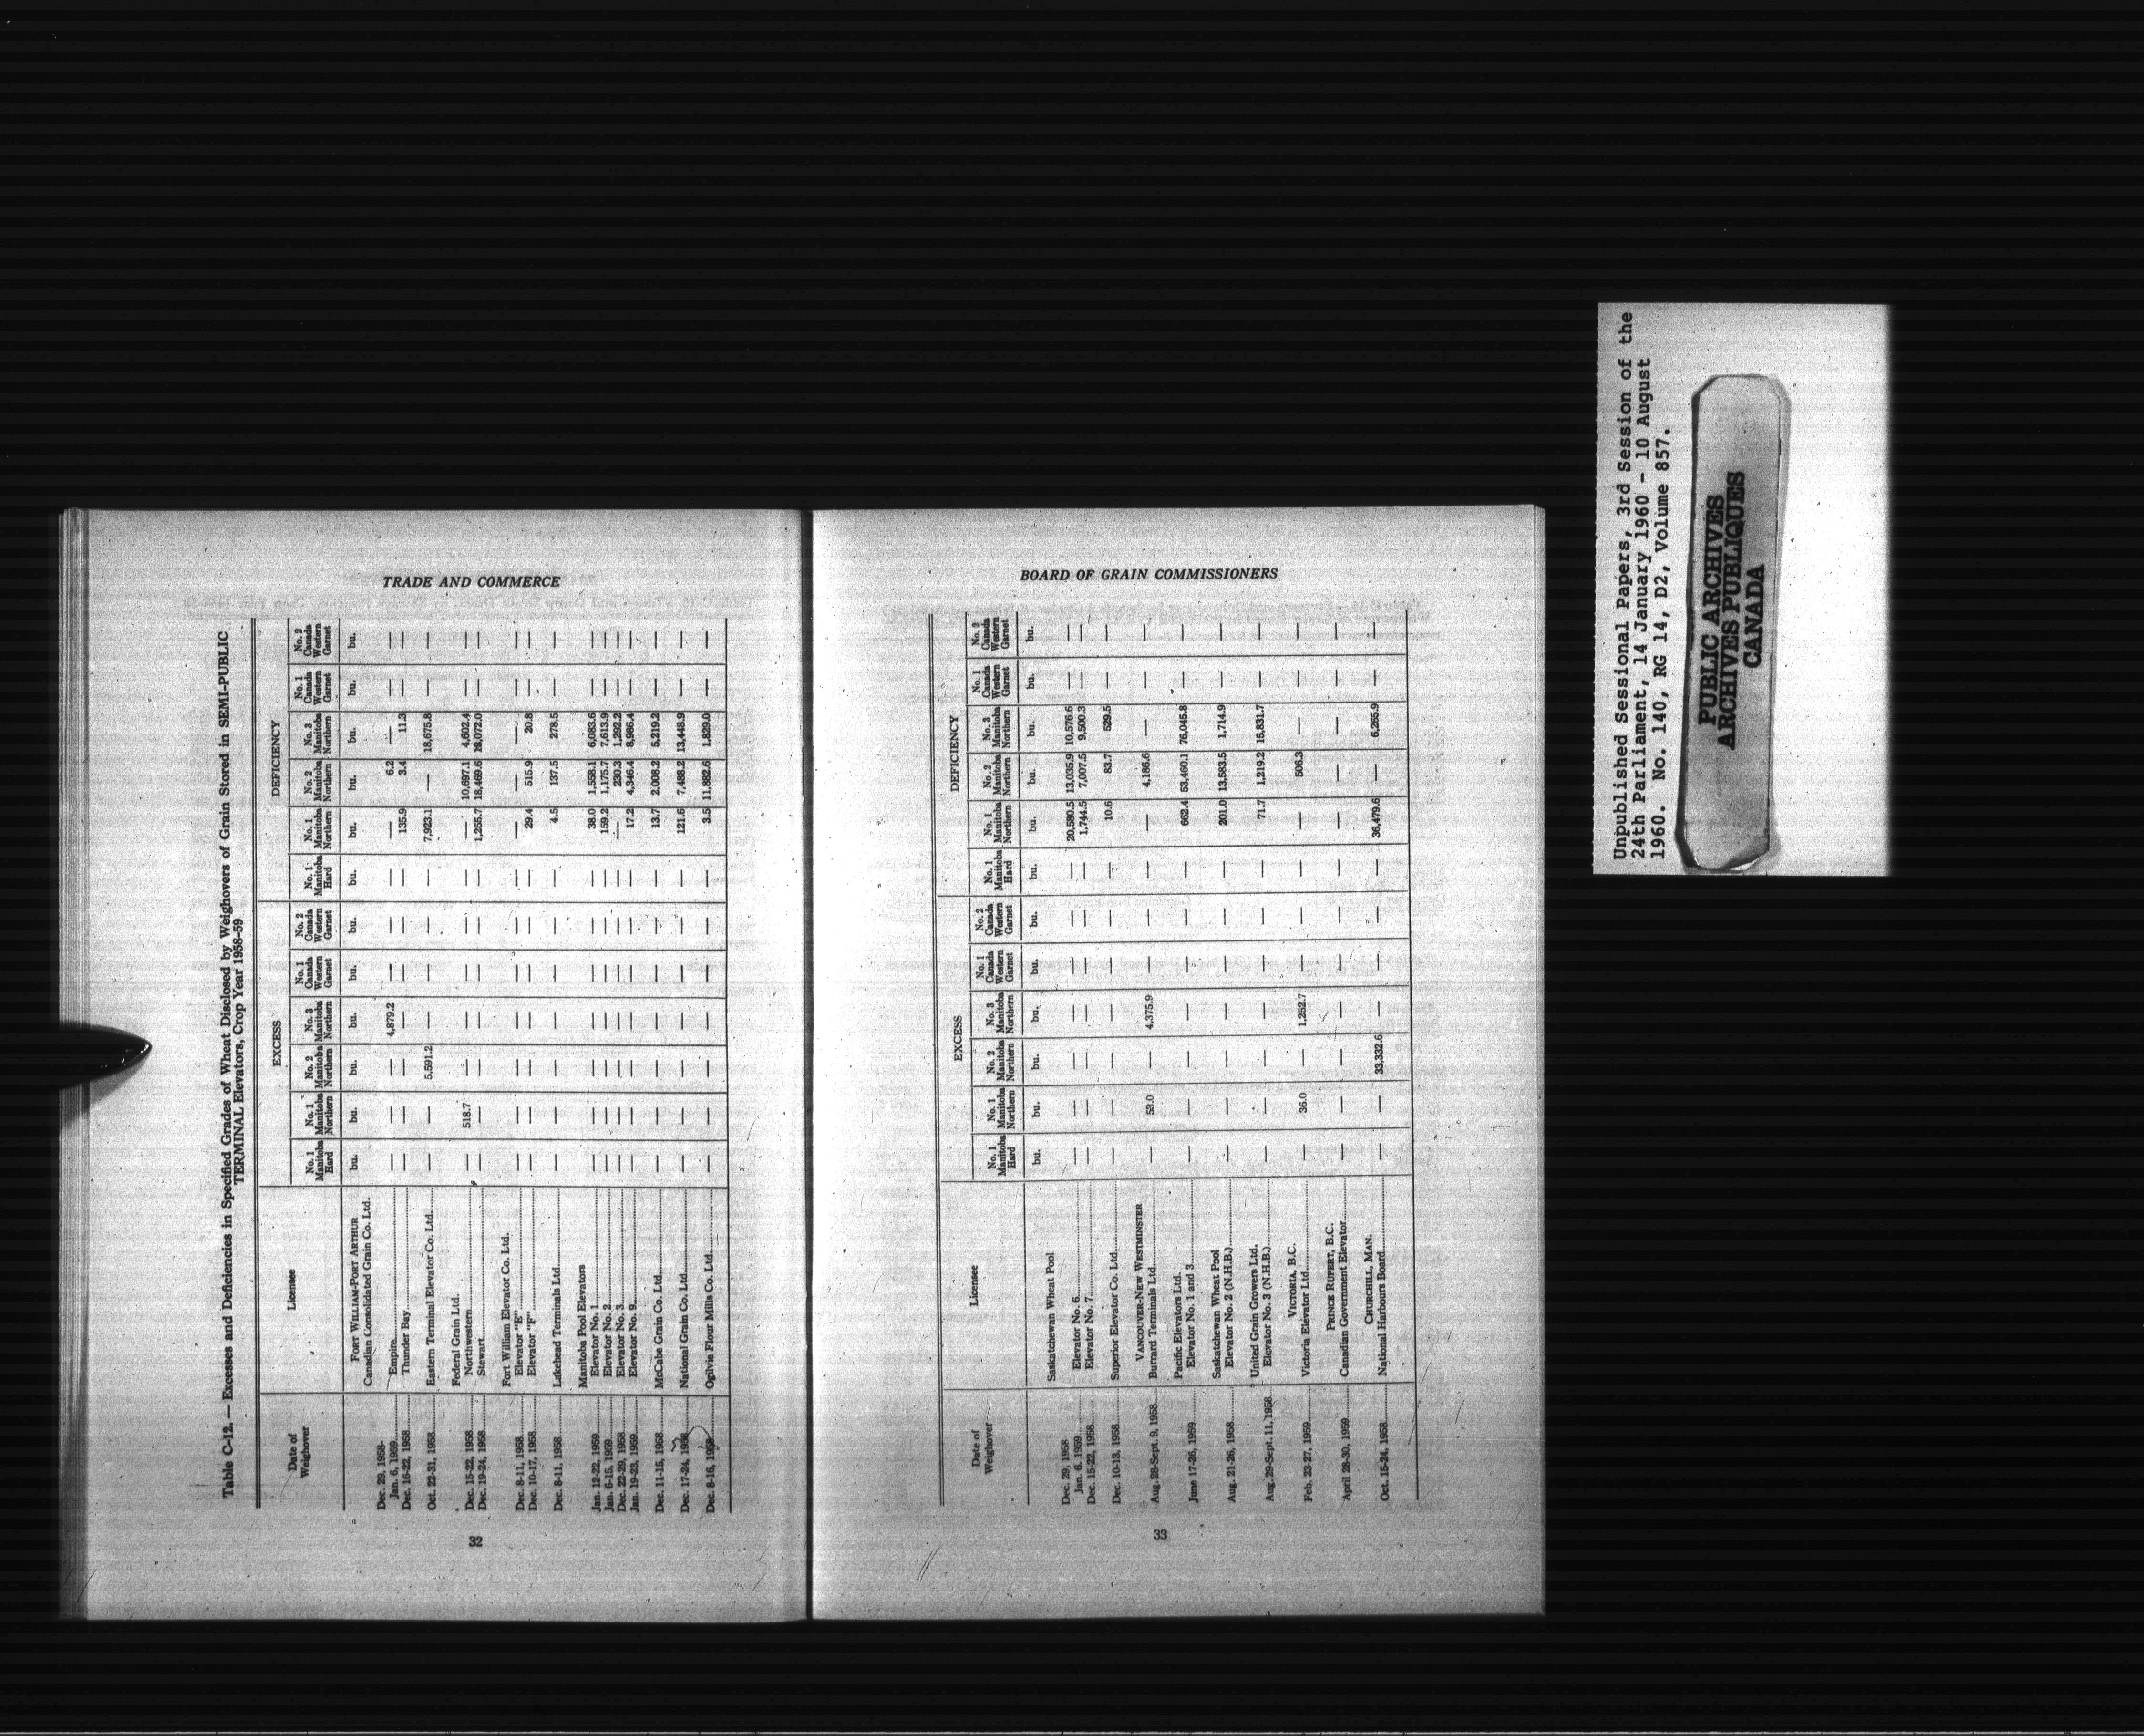 TRADE AND COMMERCE
Table C-12. — Excesses and Deficiencies in Specified Grades of Wheat Disclosed by Weighovers of Grain Stored in SEMI-PUBLIC
TERMINAL Elevators, Crop Year 1958-59
Date of Weighover | Licensee | EXCESS | DEFICIENCY
No. 1 Manitoba Hard | No. 1 Manitoba Northern | No. 2 Manitoba Northern | No. 3 Manitoba Northern | No. 1 Canada Western Garnet | No. 2 Canada Western Garnet | No. 1 Manitoba Hard | No. 1 Manitoba Northern | No. 2 Manitoba Northern | No. 3 Manitoba Northern | No. 1 Canada Western Garnet | No. 2 Canada Western Garnet
bu. | bu. | bu. | bu. | bu. | bu. | bu. | bu. | bu. | bu. | bu. | bu.
FORT WILLIAM-PORT ARTHUR
Canadian Consolidated Grain Co. Ltd.
Dec. 29, 1958-
Jan. 6, 1959 | Empire | — | — | — | 4,879.2 | — | — | — | — | 6.2 | — | — | —
Dec. 16-22, 1958 | Thunder Bay | — | — | — | — | — | — | — | 135.9 | 3.4 | 11.3 | — | —
Oct. 22-31, 1958 | Eastern Terminal Elevator Co. Ltd. | — | — | 5,591.2 | — | — | — | — | 7,923.1 | — | 18,675.8 | — | —
Federal Grain Ltd.
Dec. 15-22, 1958 | Northwestern | — | 518.7 | — | — | — | — | — | — | 10,697.1 | 4,602.4 | — | —
Dec. 19-24, 1958 | Stewart | — | — | — | — | — | — | — | 1,255.7 | 18,469.6 | 12,072.0 | — | —
Fort William Elevator Co. Ltd.
Dec. 8-11, 1958 | Elevator "E" | — | — | — | — | — | — | — | — | — | — | — | —
Dec. 10-17, 1958 | Elevator "F" | — | — | — | — | — | — | — | 29.4 | 515.9 | 20.8 | — | —
Dec. 8-11, 1958 | Lakehead Terminals Ltd. | — | — | — | — | — | — | — | 4.5 | 137.5 | 278.5 | — | —
Manitoba Pool Elevators
Jan. 12-22, 1959 | Elevator No. 1 | — | — | — | — | — | — | — | 38.0 | 1,558.1 | 6,083.6 | — | —
Jan. 6-15, 1959 | Elevator No. 2 | — | — | — | — | — | — | — | 159.2 | 1,175.7 | 7,613.9 | — | —
Dec. 22-29, 1958 | Elevator No. 3 | — | — | — | — | — | — | — | — | 230.3 | 1,292.2 | — | —
Jan. 19-23, 1959 | Elevator No. 9 | — | — | — | — | — | — | — | 17.2 | 4,346.4 | 8,986.4 | — | —
Dec. 11-15, 1958 | McCabe Grain Co. Ltd. | — | — | — | — | — | — | — | 13.7 | 2,008.2 | 5,219.2 | — | —
Dec. 17-24, 1958 | National Grain Co. Ltd. | — | — | — | — | — | — | — | 121.6 | 7,488.2 | 13,448.9 | — | —
Dec. 8-16, 1958 | Ogilvie Flour Mills Co. Ltd. | — | — | — | — | — | — | — | 3.5 | 11,882.6 | 1,829.0 | — | —
32
BOARD OF GRAIN COMMISSIONERS
Date of Weighover | Licensee | EXCESS | DEFICIENCY
No. 1 Manitoba Hard | No. 1 Manitoba Northern | No. 2 Manitoba Northern | No. 3 Manitoba Northern | No. 1 Canada Western Garnet | No. 2 Canada Western Garnet | No. 1 Manitoba Hard | No. 1 Manitoba Northern | No. 2 Manitoba Northern | No. 3 Manitoba Northern | No. 1 Canada Western Garnet | No. 2 Canada Western Garnet
bu. | bu. | bu. | bu. | bu. | bu. | bu. | bu. | bu. | bu. | bu. | bu.
Saskatchewan Wheat Pool
Dec. 29, 1958-
Jan. 6, 1959 | Elevator No. 6 | — | — | — | — | — | — | — | 20,580.5 | 13,035.9 | 10,576.6 | — | —
Dec. 15-22, 1958 | Elevator No. 7 | — | — | — | — | — | — | — | 1,744.5 | 7,007.5 | 9,500.3 | — | —
Dec. 10-13, 1958 | Superior Elevator Co. Ltd. | — | — | — | — | — | — | — | 10.6 | 83.7 | 529.5 | — | —
VANCOUVER-NEW WESTMINSTER
Aug. 28-Sept. 9, 1958 | Burrard Terminals Ltd. | — | 53.0 | — | 4,375.9 | — | — | — | — | 4,186.6 | — | — | —
Pacific Elevators Ltd.
June 17-26, 1959 | Elevator No. 1 and 3 | — | — | — | — | — | — | — | 662.4 | 53,460.1 | 76,045.8 | — | —
Saskatchewan Wheat Pool
Aug. 21-26, 1958 | Elevator No. 2 (N.H.B.) | — | — | — | — | — | — | — | 201.0 | 13,583.5 | 1,714.9 | — | —
United Grain Growers Ltd.
Aug. 29-Sept. 11, 1958 | Elevator No. 3 (N.H.B.) | — | — | — | — | — | — | — | 71.7 | 1,219.2 | 15,831.7 | — | —
VICTORIA, B.C.
Feb. 23-27, 1959 | Victoria Elevator Ltd. | — | 36.0 | — | 1,252.7 | — | — | — | — | 506.3 | — | — | —
PRINCE RUPERT, B.C.
April 28-30, 1959 | Canadian Government Elevator | — | — | — | — | — | — | — | — | — | — | — | —
CHURCHILL, MAN.
Oct. 15-24, 1958 | National Harbours Board | — | — | 33,332.6 | — | — | — | — | 36,479.6 | — | 6,265.9 | — | —
33
Unpublished Sessional Papers, 3rd Session of the
24th Parliament, 14 January 1960 - 10 August
1960. No. 140, RG 14, D2, Volume 857.
PUBLIC ARCHIVES
ARCHIVES PUBLIQUES
CANADA